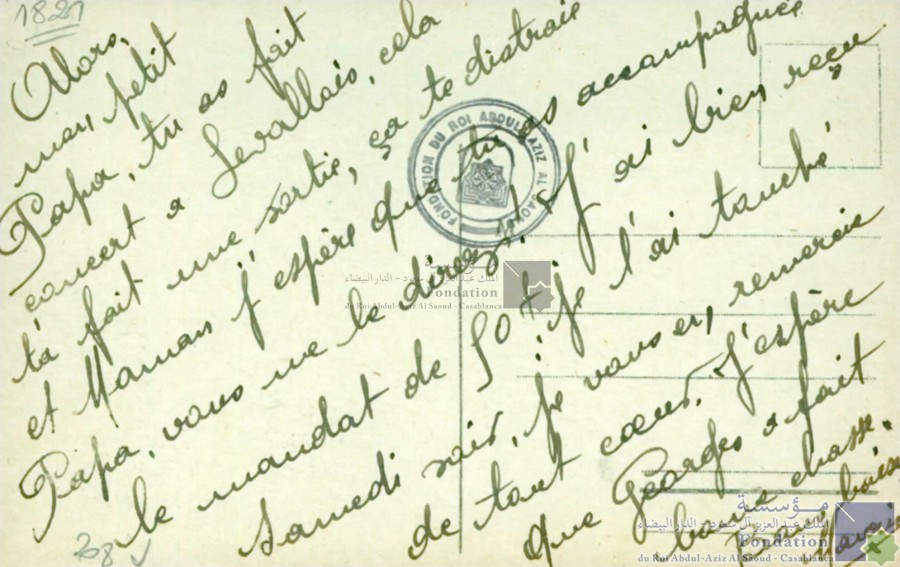 1821
Alors,
mon petit
Papa, tu as fait
concert a Levallois, cela
t'a fait une sortie, ça te distrais
et Maman j'espère que tu as accompagnée
Papa, vous me le direz. J'ai bien reçu
le mandat de 50f je l'ai touché
samedi soir, je vous en remercie
de tout cœur. J'espère
que Georges a fait
bonne chasse.
baisers
208
FONDATION DU ROI ABDOUL AZIZ AL SAOUD
مؤسسة
الملك عبد العزيز آل سعود - الدار البيضاء
Fondation
du Roi Abdul-Aziz Al Saoud - Casablanca
مؤسسة
الملك عبد العزيز آل سعود - الدار البيضاء
Fondation
du Roi Abdul-Aziz Al Saoud - Casablanca